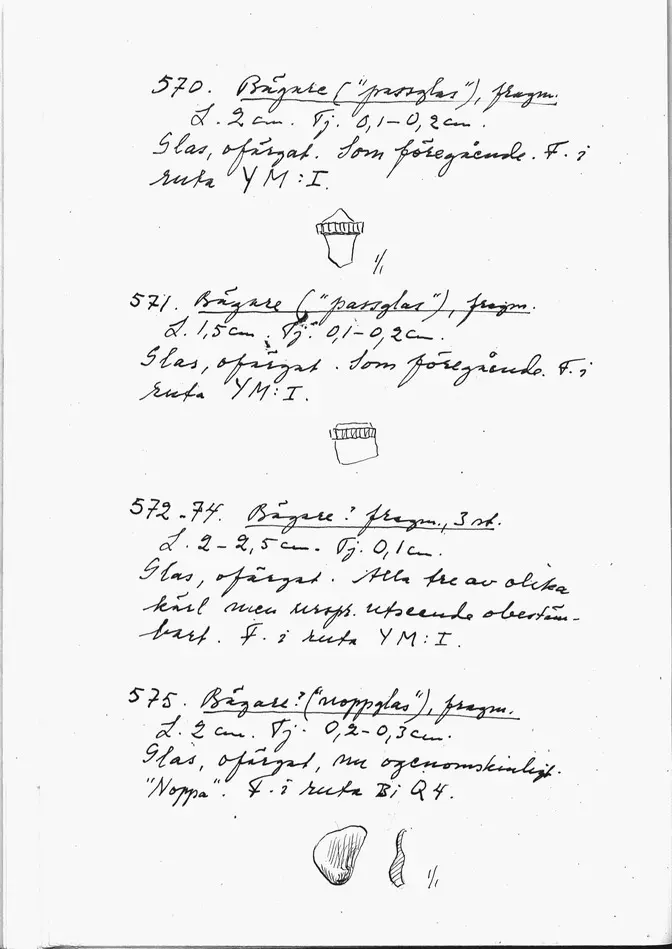 570. Bägare ("passglas"), fragm.
L. 2 cm. Tj. 0,1-0,2 cm.
Glas, ofärgat. Som föregående. F. i
ruta YM:I.
1/1
571. Bägare ("passglas"), fragm.
L. 1,5 cm. Tj. 0,1-0,2 cm.
Glas, ofärgat. Som föregående. F. i
ruta YM:I.
572-74. Bägare? fragm., 3 st.
L. 2-2,5 cm. Tj. 0,1 cm.
Glas, ofärgat. Alla tre av olika
kärl men urspr. utseende obestäm-
bart. F. i ruta YM:I.
575. Bägare? ("noppglas"), fragm.
L. 2 cm. Tj. 0,2-0,3 cm.
Glas, ofärgat, nu ogenomskinligt.
"Noppa". F. i ruta Bi Q4.
1/1